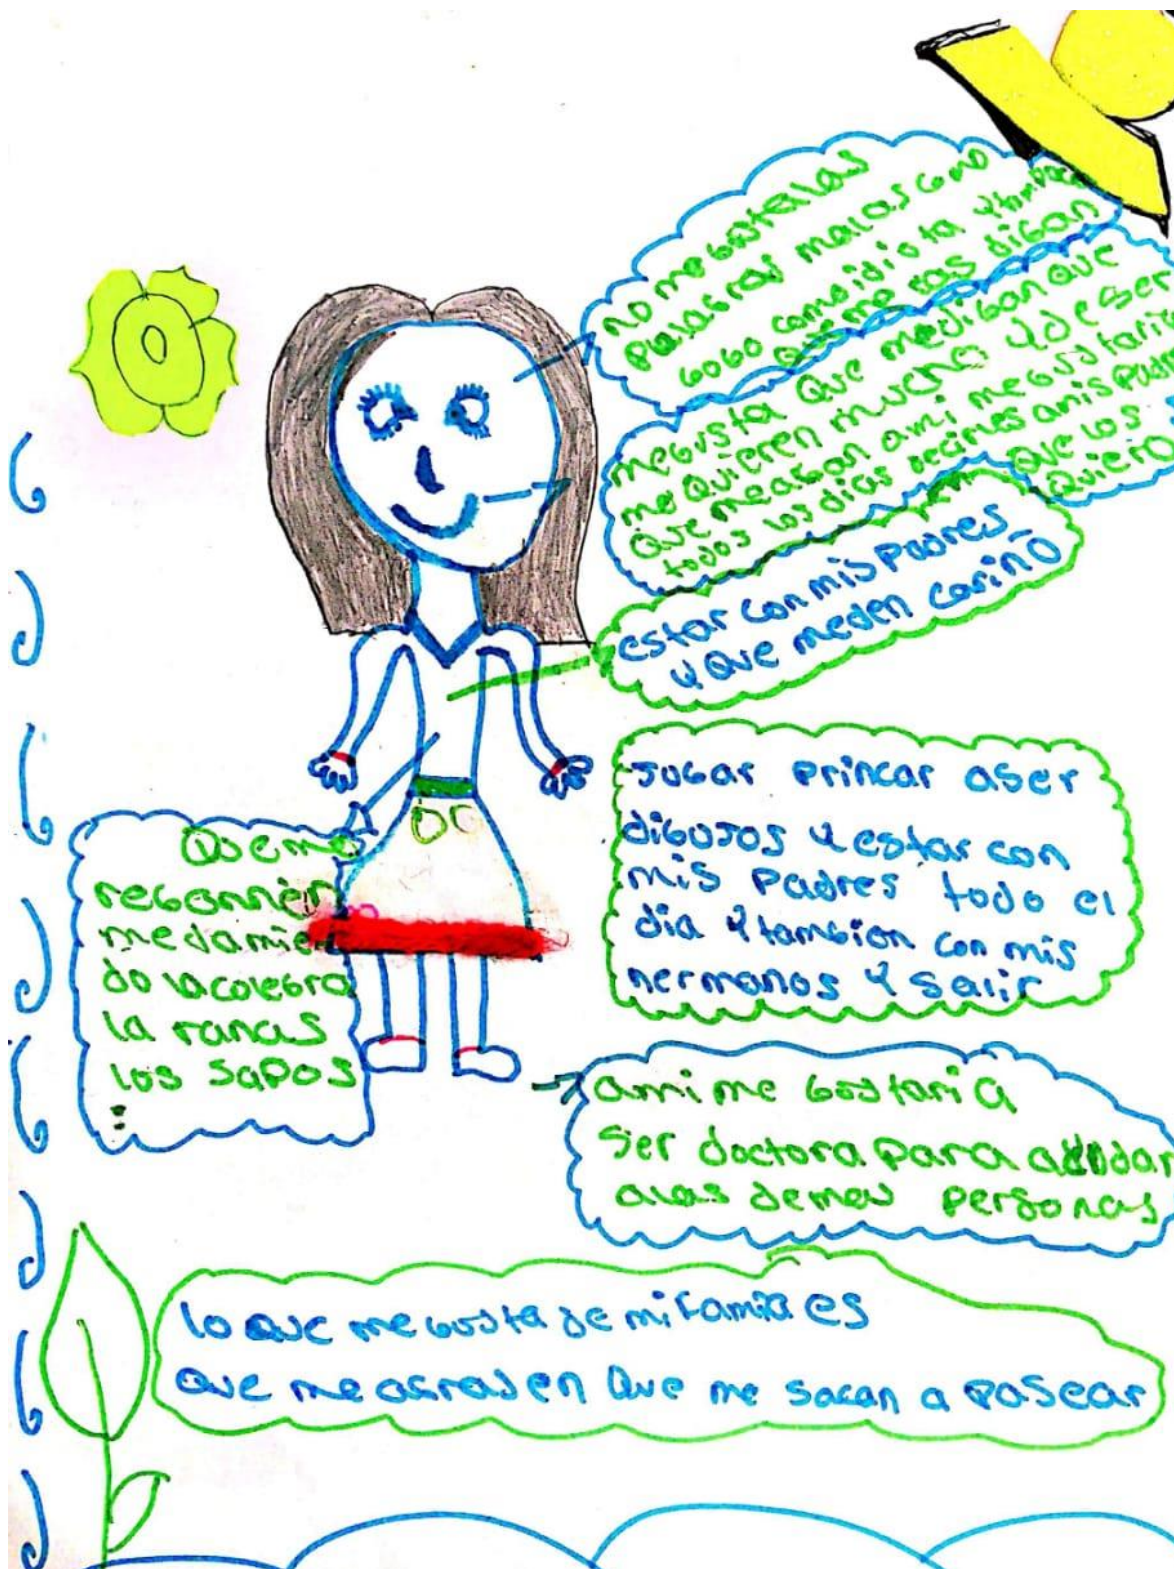 no me gusta las
palabras malas como
bobo como idiota y tampoco
que me las digan
me gusta que me digan que
me quieren mucho y de ser
que me agan ami me gustaria
todos los dias decirles amis padres
que los
quiero
estar con mis padres
y que meden cariño
jugar princar aser
dibujos y estar con
mis padres todo el
dia y tambien con mis
hermanos y salir
Que me
regannen
me da mie
do la colebra
la ranas
los sapos
ami me gustaria
ser doctora para
alas demas personas
lo que me gusta de mi familia es
que me sacan a pasear